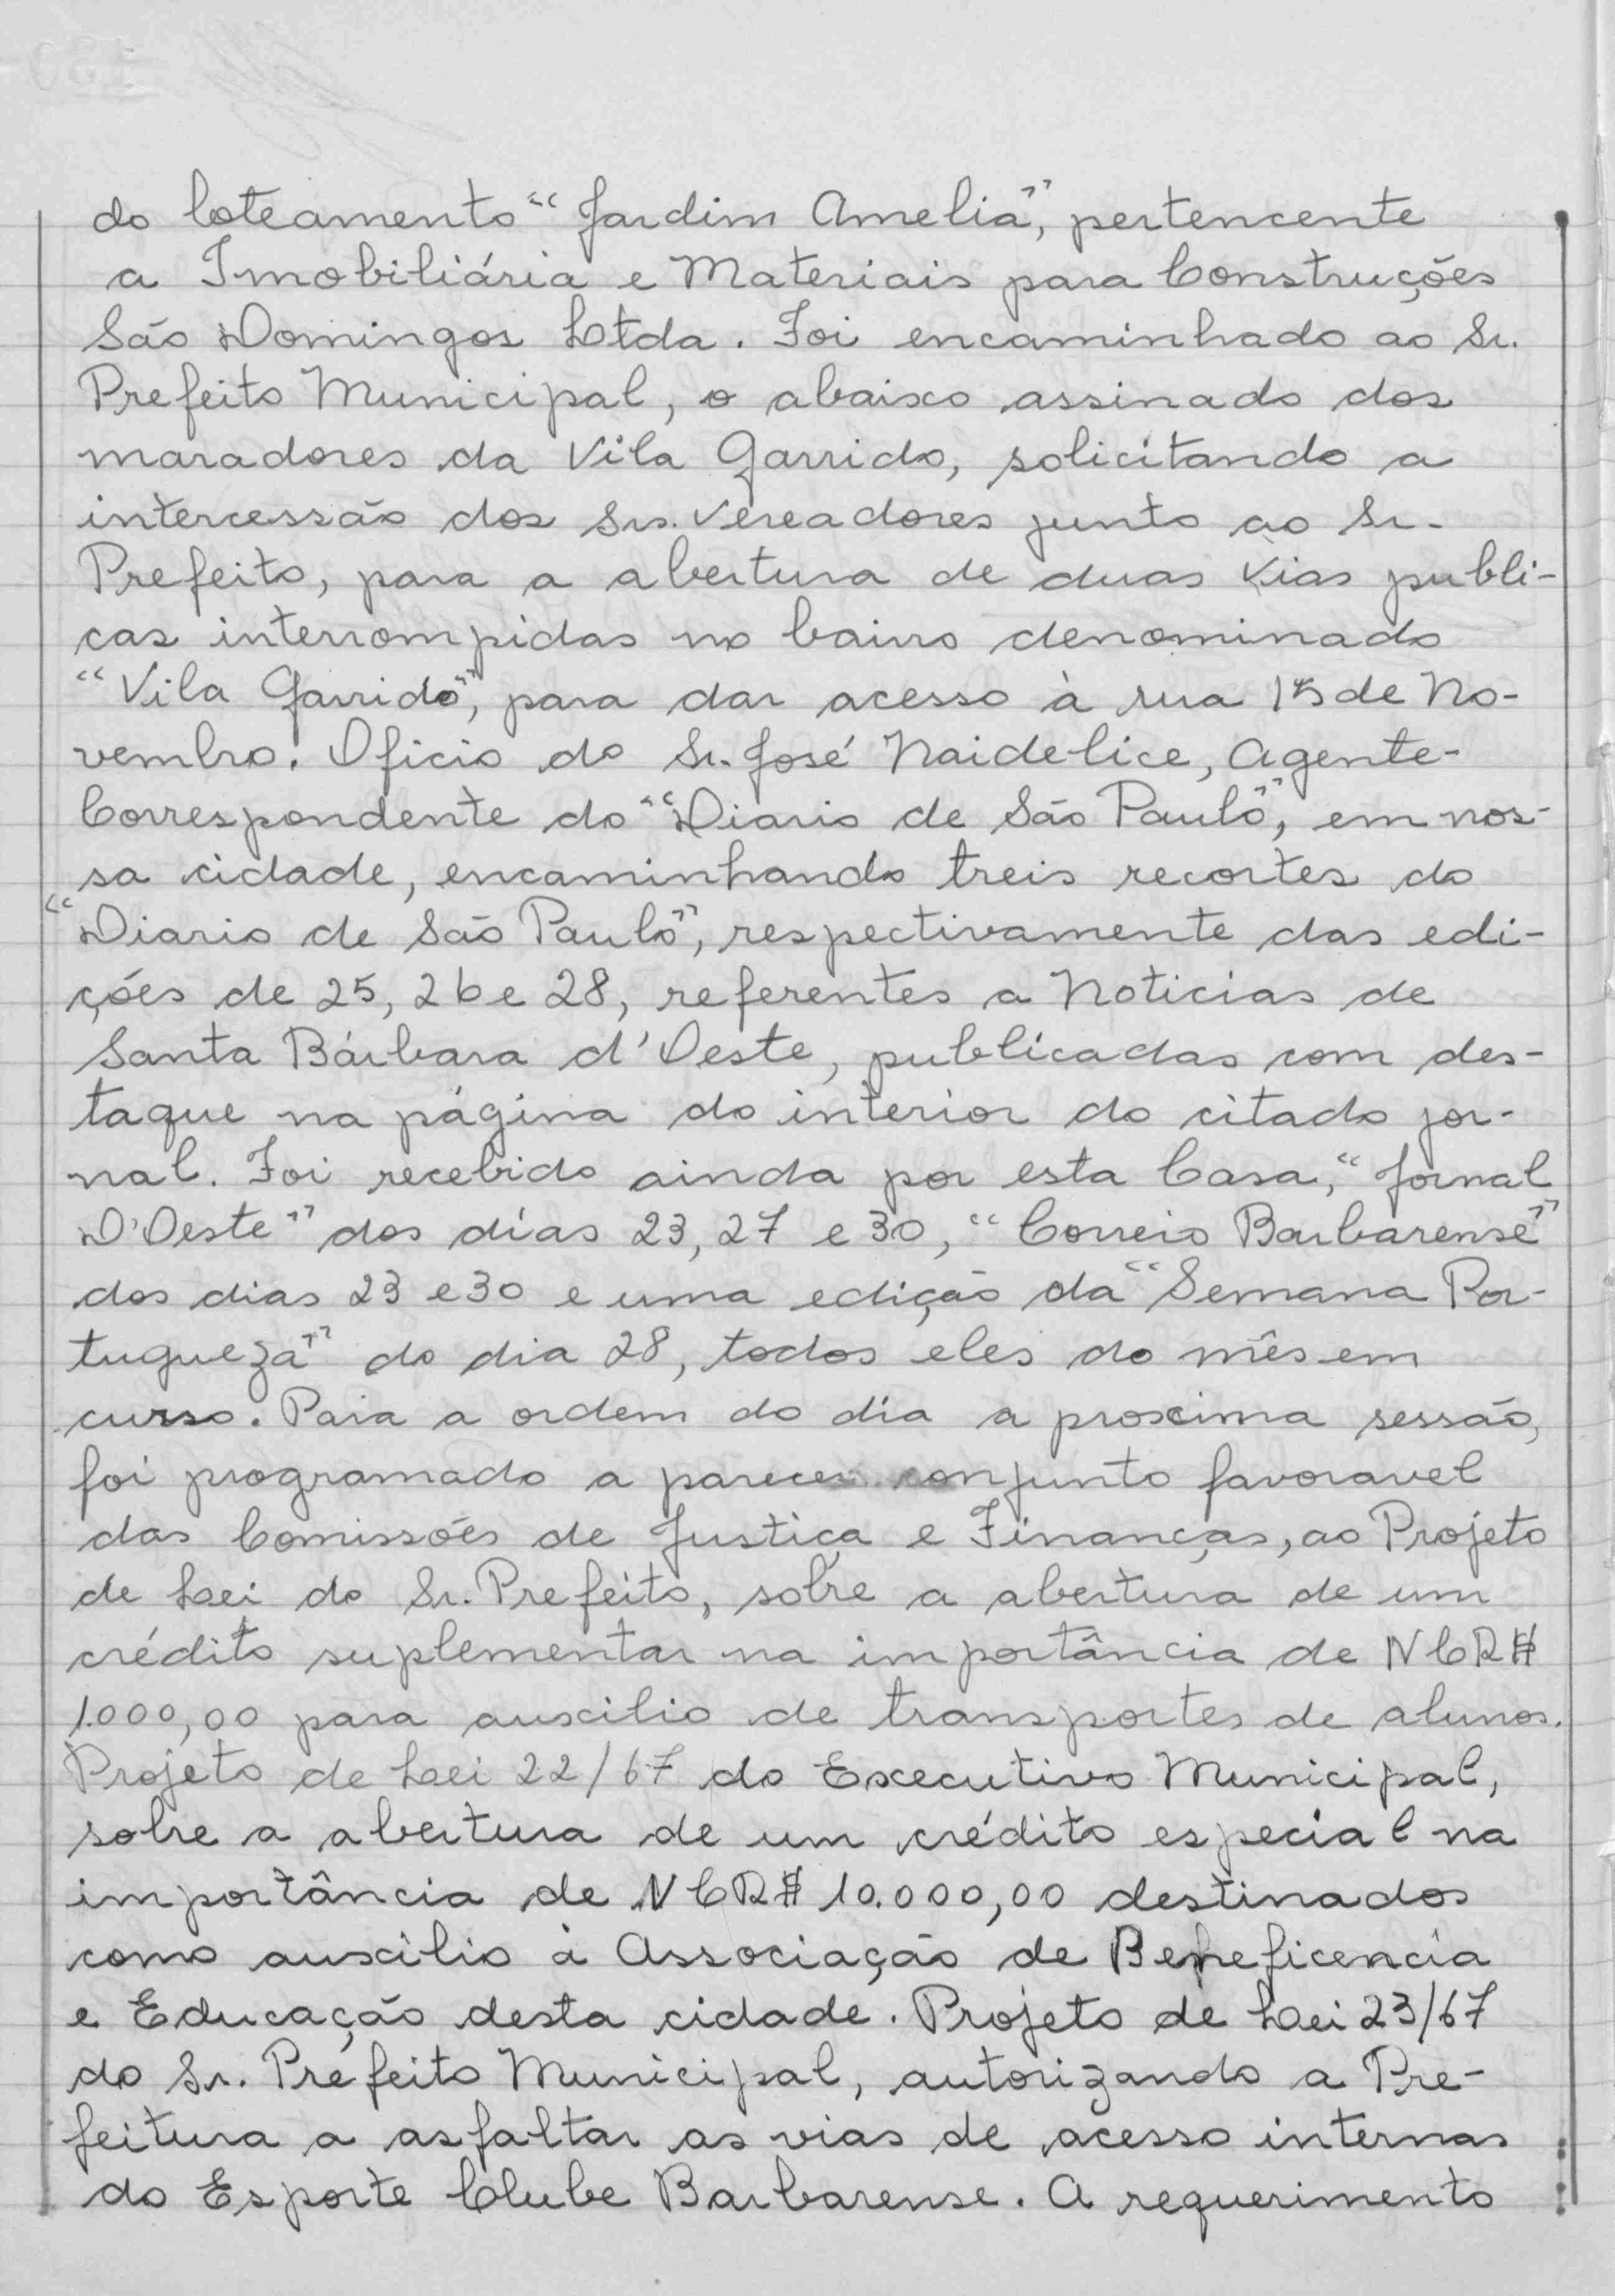 do loteamento "Jardim Amelia", pertencente
a Imobiliária e Materiais para Construções
São Domingos Ltda. Foi encaminhado ao Sr.
Prefeito Municipal, o abaixo assinado dos
maradores da Vila Garrido, solicitando a
intercessão dos Srs. Vereadores junto ao Sr.
Prefeito, para a abertura de duas vias publi-
cas interrompidas no bairro denominado
"Vila Garrido", para dar acesso à rua 15 de No-
vembro. Oficio do Sr. José Naidelice, Agente-
Correspondente do "Diario de São Paulo", em nos-
sa cidade, encaminhando treis recortes do
"Diario de São Paulo", respectivamente das edi-
ções de 25, 26 e 28, referentes a Noticias de
Santa Bárbara d'Oeste, publicadas com des-
taque na página do interior do citado jor-
nal. Foi recebido ainda por esta Casa, "Jornal
D'Oeste" dos dias 23, 27 e 30, "Correio Barbarense"
dos dias 23 e 30 e uma edição da "Semana Por-
tugueza" do dia 28, todos eles do mês em
curso. Para a ordem do dia a proxima sessão,
foi programado a parecer conjunto favoravel
das Comissões de Justiça e Finanças, ao Projeto
de Lei do Sr. Prefeito, sobre a abertura de um
crédito suplementar na importância de NCR$
1.000,00 para auxilio de transportes de alunos.
Projeto de Lei 22/67 do Executivo Municipal,
sobre a abertura de um crédito especial na
importância de NCR$ 10.000,00 destinados
como auxilio à Associação de Beneficencia
e Educação desta cidade. Projeto de Lei 23/67
do Sr. Prefeito Municipal, autorizando a Pre-
feitura a asfaltar as vias de acesso internas
do Esporte Clube Barbarense. A requerimento